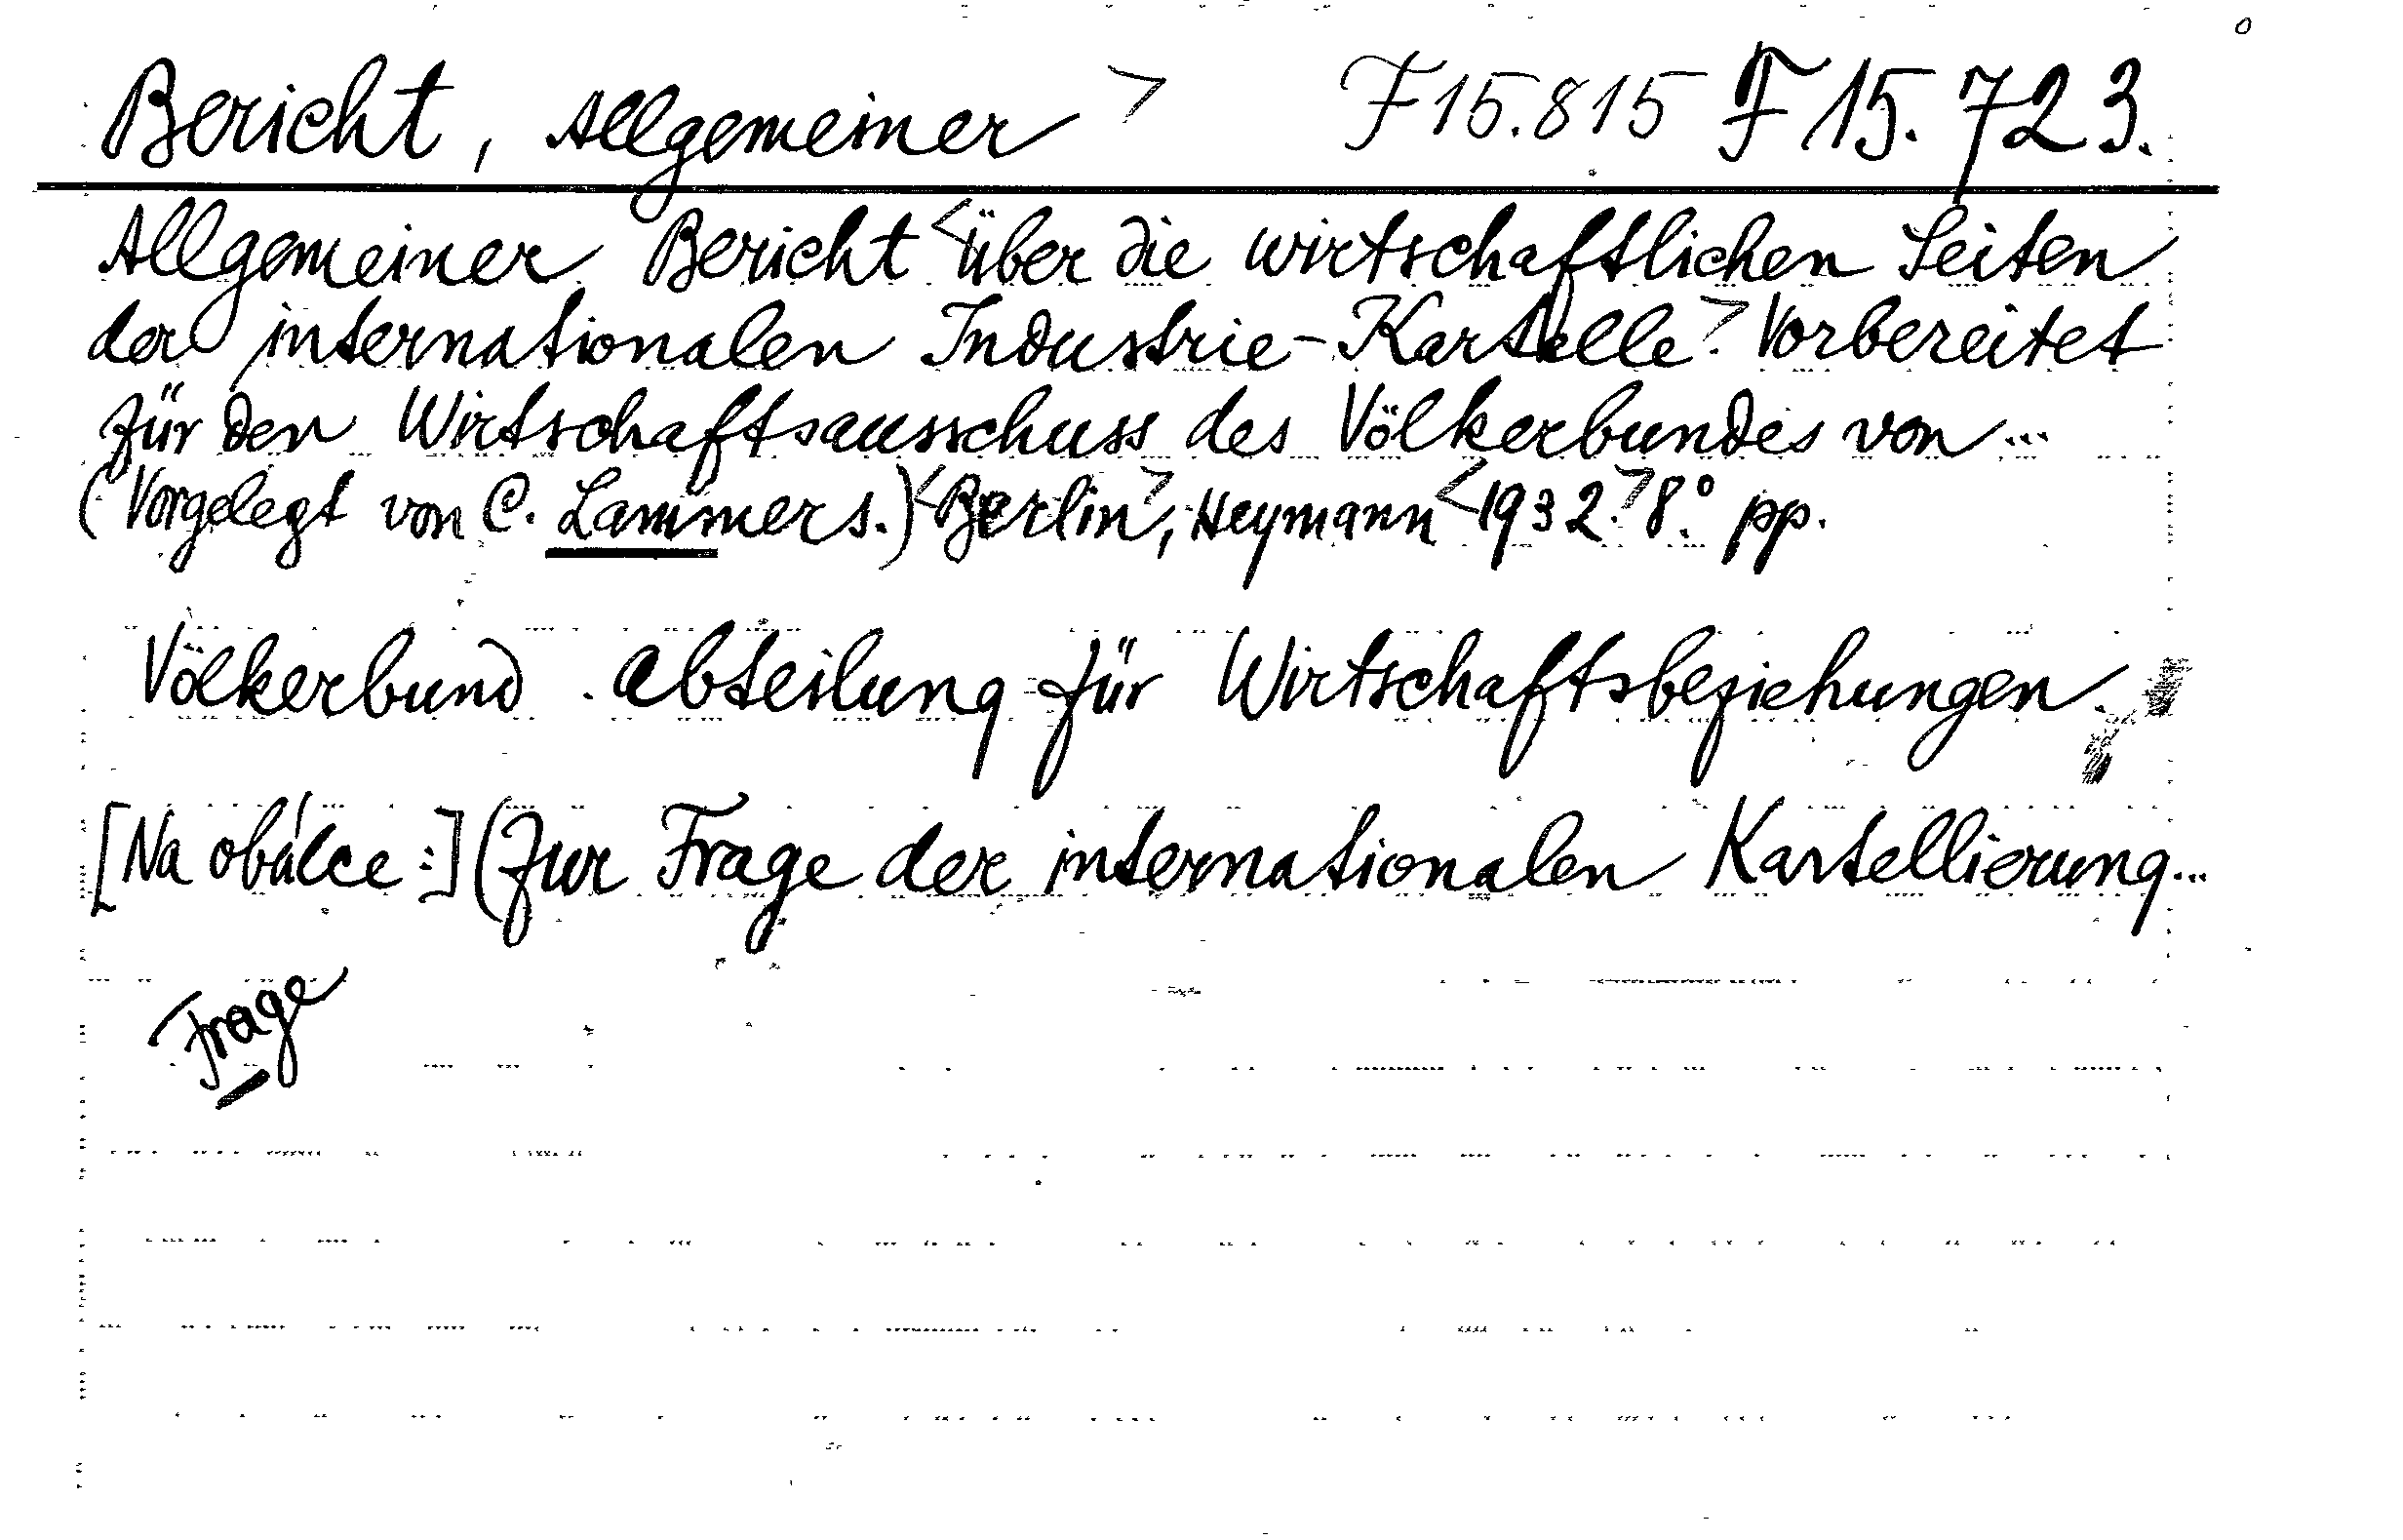 Bericht, Allgemeiner > F 15.815 F 15.723.
Allgemeiner Bericht <über die wirtschaftlichen Seiten
der internationalen Industrie-Kartelle.> Vorbereitet
für den Wirtschaftsausschuss des Völkerbundes von ...
(Vorgelegt von C. Lammers.) <Berlin>, Heymann <1932.> 8° pp.
Völkerbund. Abteilung für Wirtschaftsbeziehungen.
[Na obálce:] (Zur Frage der internationalen Kartellierung...
Frage